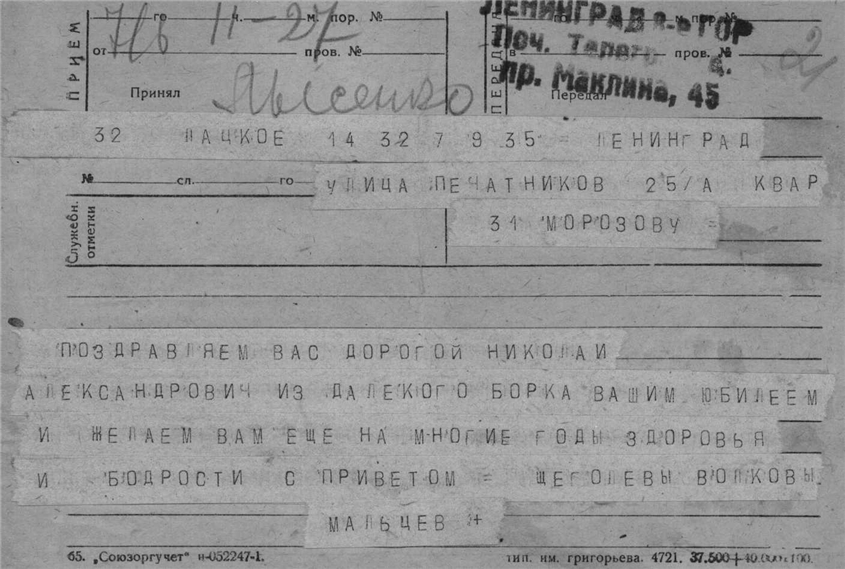 го ч. м. пор. №
7/6 11-27
ЛЕНИНГРАД
ПРИЕМ
от пров. №
Поч. Телегр
пров. №
21
Принял
Лысенко
пр. Маклина, 45
Передал
32 ПАЦКОЕ 14 32 7 9 35 = ЛЕНИНГРАД
№ сл. го УЛИЦА ПЕЧАТНИКОВ 25/А КВАР
31 МОРОЗОВУ =
Служебн. отметки
ПОЗДРАВЛЯЕМ ВАС ДОРОГОЙ НИКОЛАИ
АЛЕКСАНДРОВИЧ ИЗ ДАЛЕКОГО БОРКА ВАШИМ ЮБИЛЕЕМ
И ЖЕЛАЕМ ВАМ ЕЩЕ НА МНОГИЕ ГОДЫ ЗДОРОВЬЯ
И БОДРОСТИ С ПРИВЕТОМ = ЩЕГОЛЕВЫ ВОЛКОВЫ
МАЛЬЦЕВ +
65. „Союзоргучет" н-052247-1. тип. им. григорьева. 4721. 37.500+